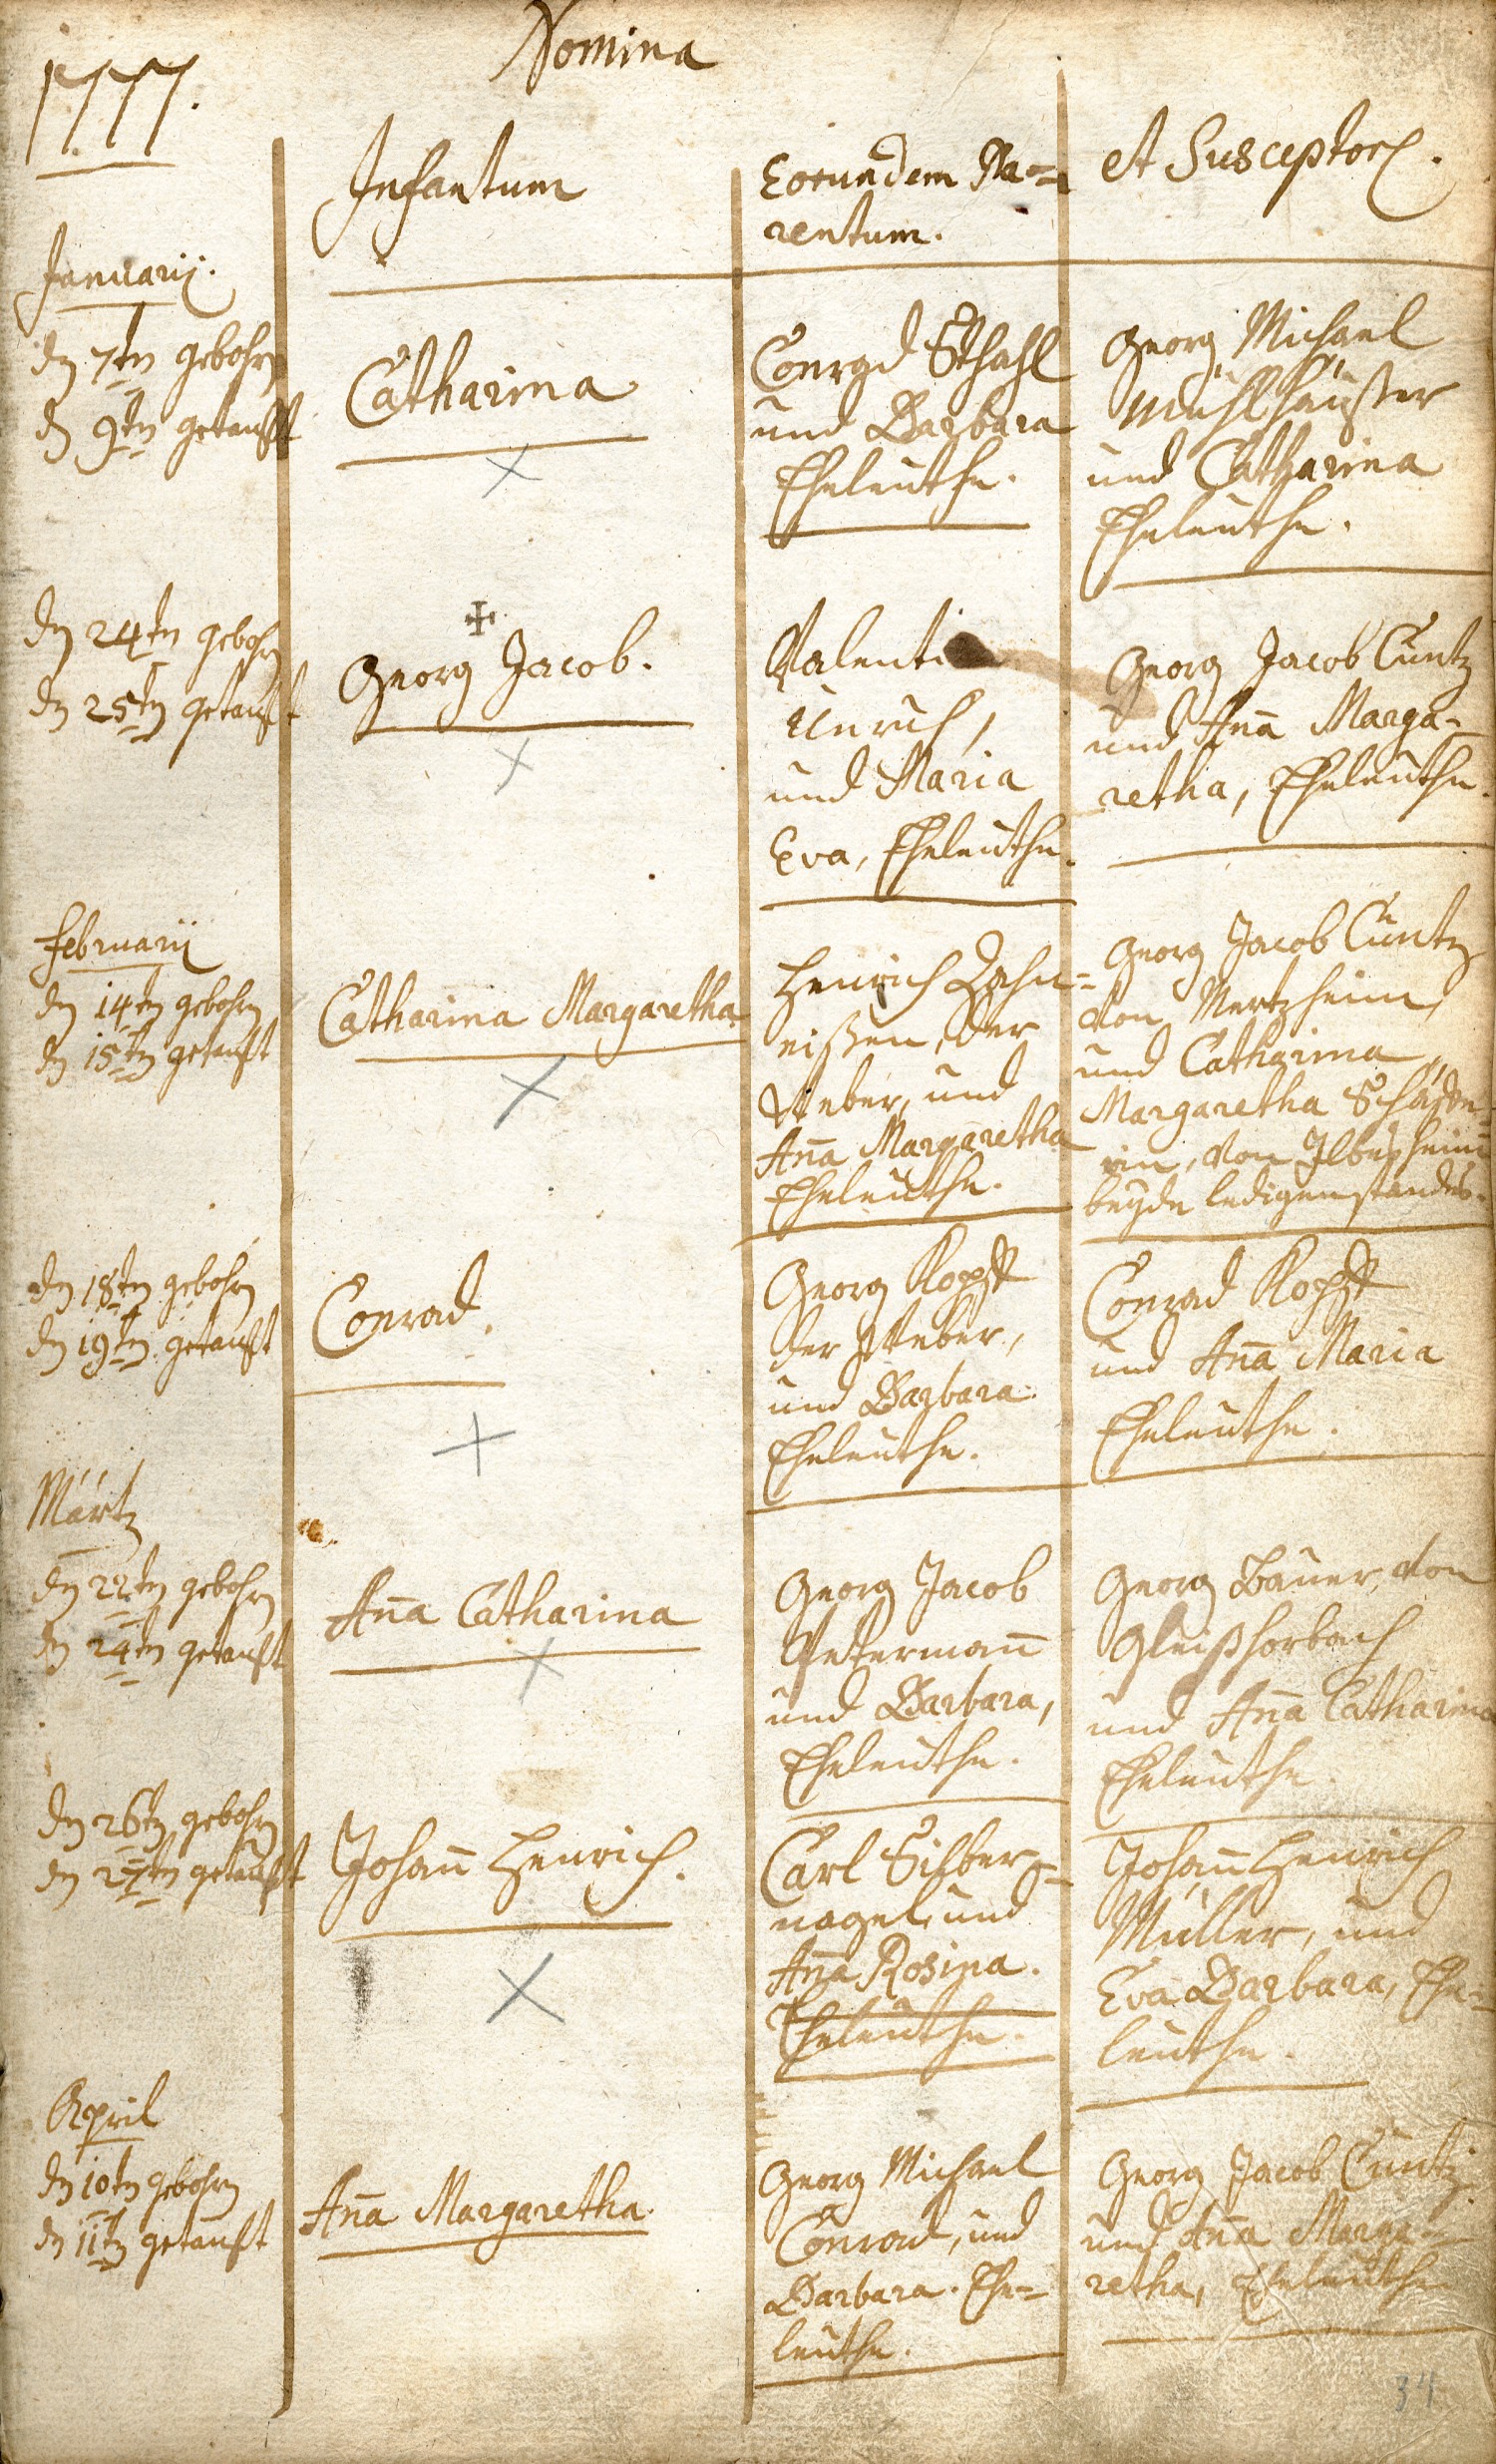 1777.
Nomina
Infantum
Eorundem Pa=
rentum.
et Susceptor.
Januarij.
dn 7tn gebohrn
dn 9tn getaufft
Catharina
Conrad Sthahl
und Barbara
Eheleuthe.
Georg Michael
Mühlhäußer
und Catharina
Eheleuthe.
dn 24tn gebohrn
dn 25tn getaufft
Georg Jacob.
Valenti
Unruh,
und Maria
Eva, Eheleuthe.
Georg Jacob Cuntz
und Ana Marga-
retha, Eheleuthe.
Februarij
dn 14tn gebohrn
dn 15tn getaufft
Catharina Margaretha
Henrich Zahn=
eißen, der
Weber, und
Ana Margaretha
Eheleuthe.
Georg Jacob Cuntz
von Mertzheim,
und Catharina
Margaretha
rin, von Ilbesheim
beyde ledigen standes.
dn 18tn gebohrn
dn 19tn getaufft
Conrad.
Georg Kopff
der Weber,
und Barbara
Eheleuthe.
Conrad Kopff
und Ana Maria
Eheleuthe.
Märtz
dn 22tn gebohrn
dn 24tn getaufft
Ana Catharina
Georg Jacob
Petermañ
und Barbara,
Eheleuthe.
Georg Bauer, von
Gleißhorbach
und Ana Catharina
Eheleuthe.
dn 26tn gebohrn
dn 27tn getaufft
Johañ Henrich.
Carl Silber=
nagel, und
Ana Rosina.
Eheleuthe.
Johañ Henrich
Müller, und
Eva Barbara, Ehe=
leuthe.
April
dn 10tn gebohrn
dn 11tn getaufft
Ana Margaretha.
Georg Michael
Conrad, und
Barbara. Ehe=
leuthe.
Georg Jacob Cuntz
und Ana Marga=
retha, Eheleuthe
34